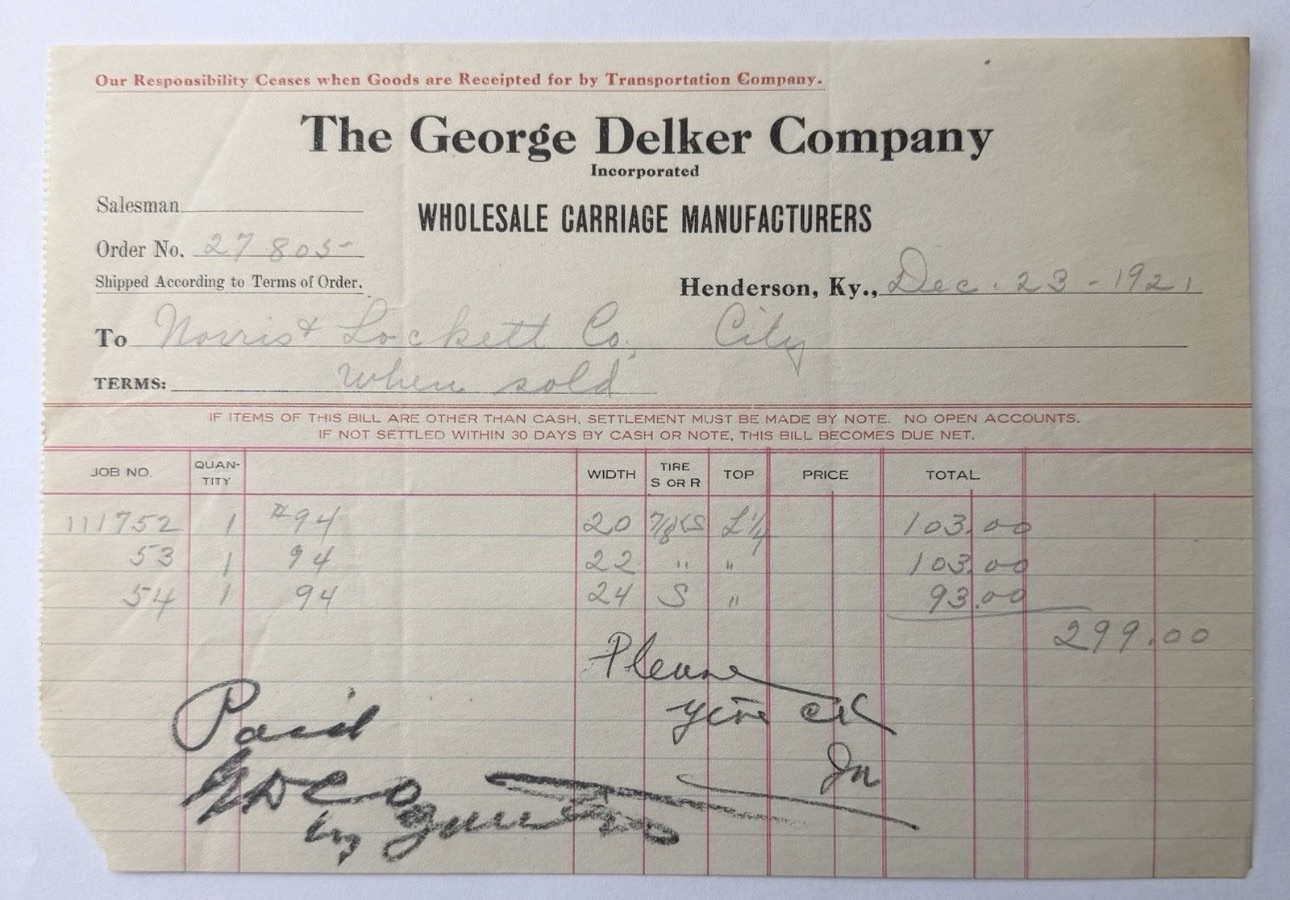 Our Responsibility Ceases when Goods are Receipted for by Transportation Company.
The George Delker Company
Incorporated
WHOLESALE CARRIAGE MANUFACTURERS
Salesman
Order No. 27805
Shipped According to Terms of Order.
Henderson, Ky., Dec. 23-1921
To Norris & Lockett Co. City
TERMS: when sold
IF ITEMS OF THIS BILL ARE OTHER THAN CASH, SETTLEMENT MUST BE MADE BY NOTE. NO OPEN ACCOUNTS.
IF NOT SETTLED WITHIN 30 DAYS BY CASH OR NOTE, THIS BILL BECOMES DUE NET.
JOB NO. QUAN-TITY WIDTH TIRE S OR R TOP PRICE TOTAL
111752 1 #94 20 7/8 KS L 1/4 103.00
53 1 94 22 " " 103.00
54 1 94 24 S " 93.00
299.00
Please
give ck
Paid
by